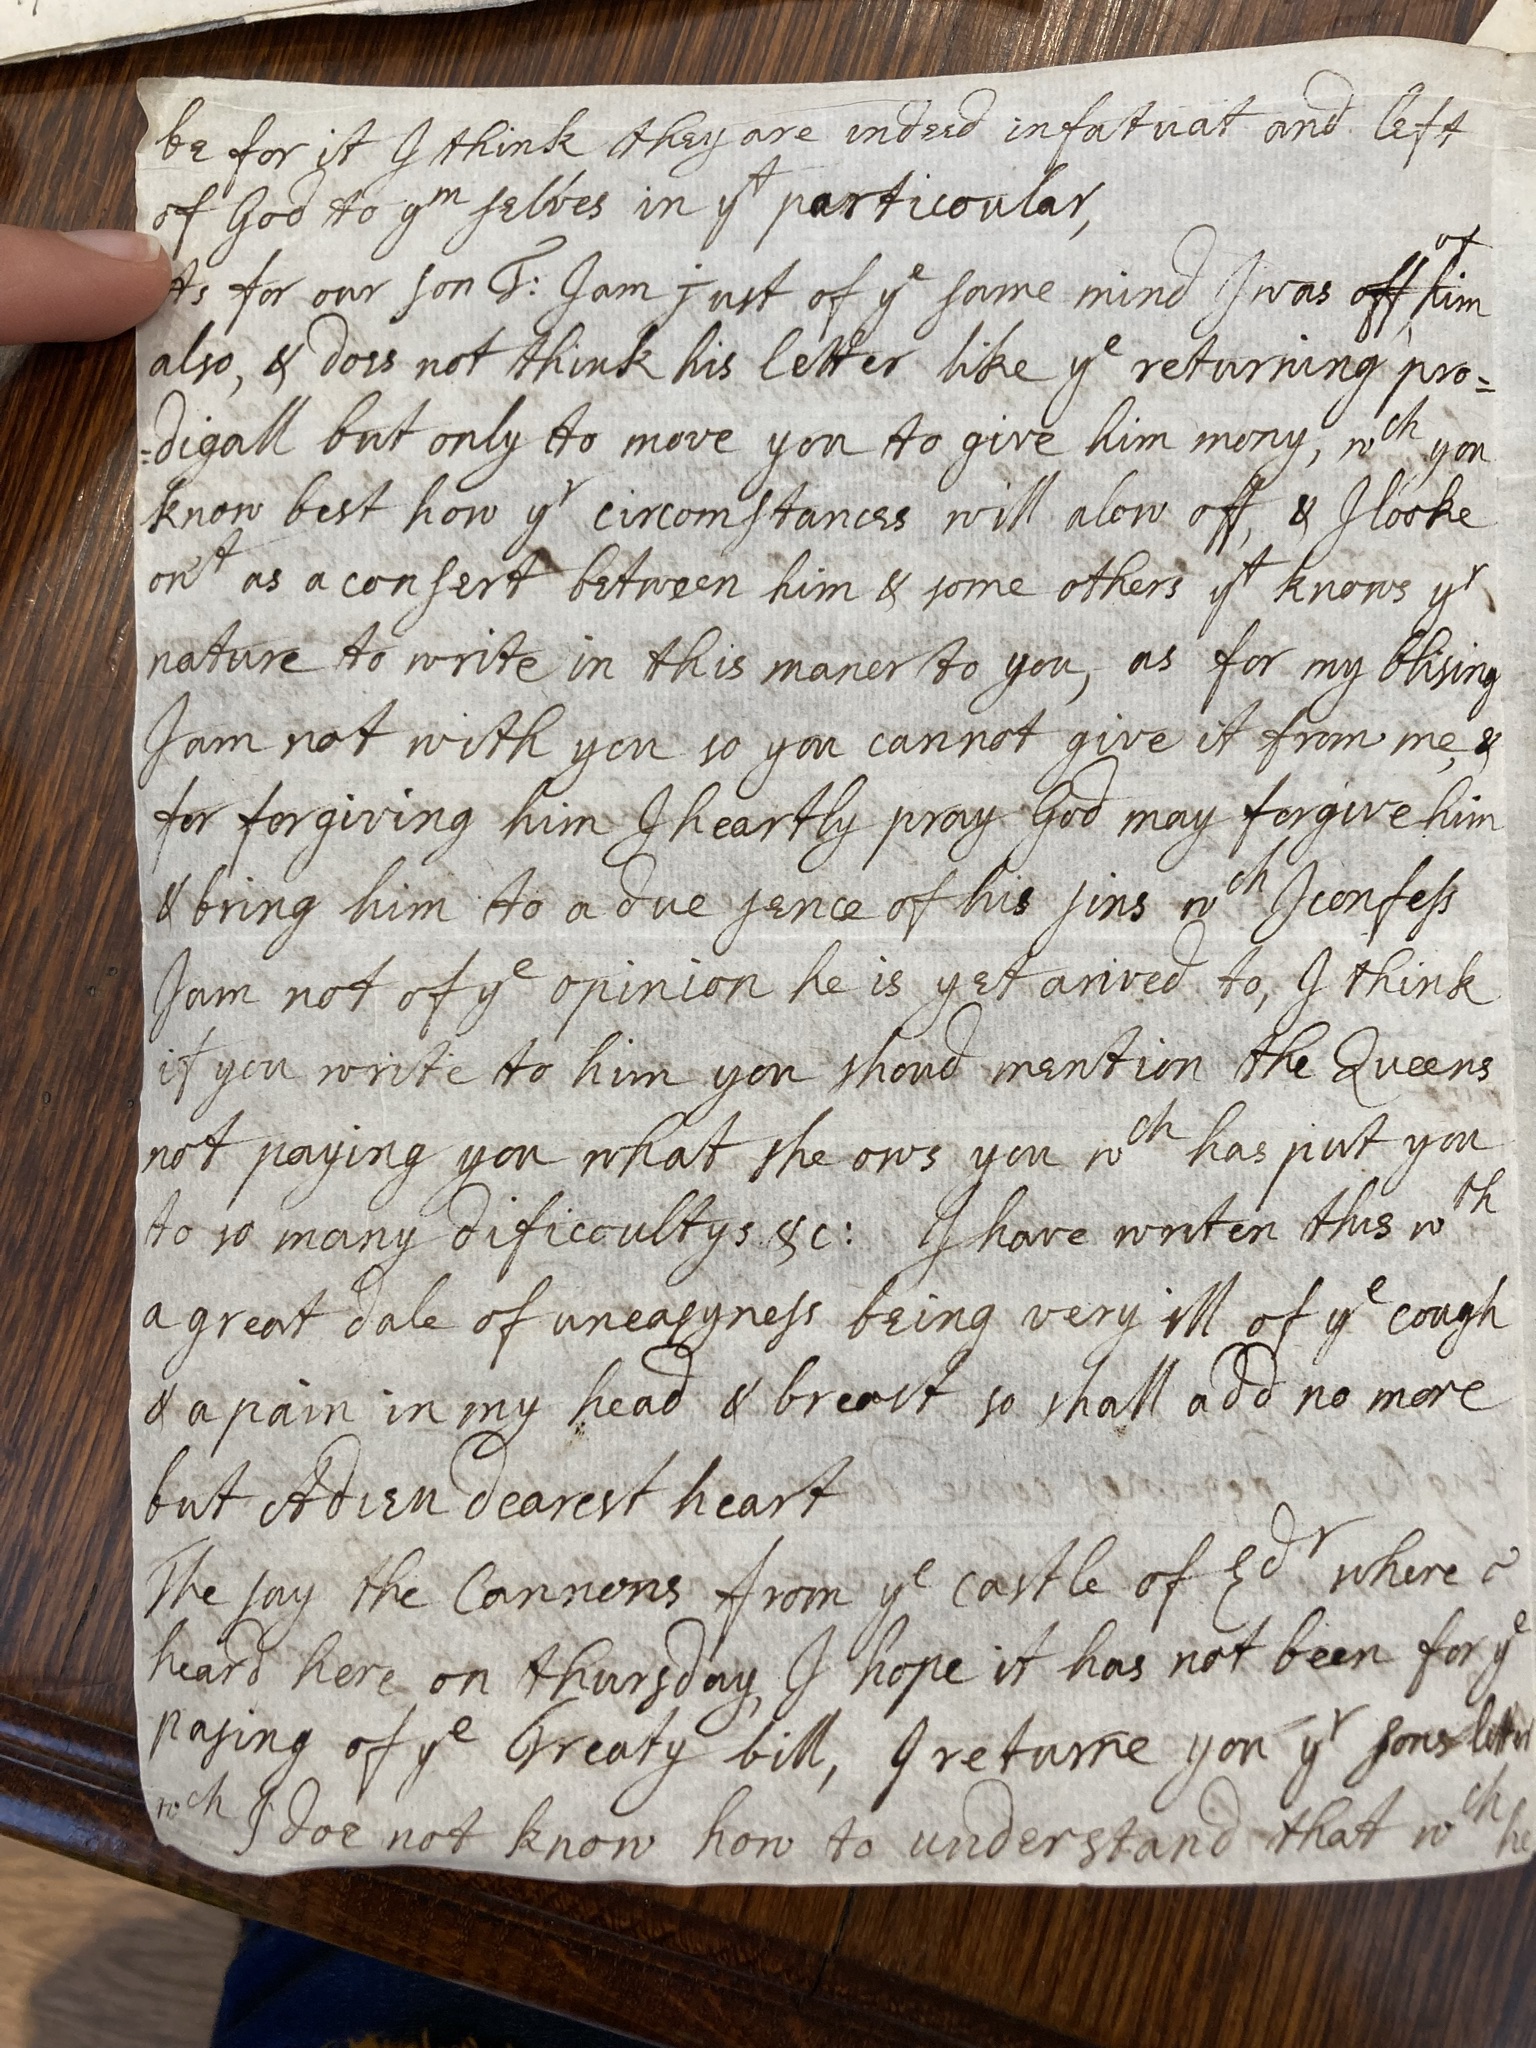 be for it I think they are indeed infatuat and left
of God to ym selves in yt particoular,
As for our son T: I am just of ye same mind I was off of him
also, & does not think his letter like ye returning pro=
=digall but only to move you to give him mony, wch you
know best how yr circomstances will alow off, & I looke
on't as a consert between him & some others yt knows yr
nature to write in this maner to you, as for my blising
I am not with you so you cannot give it from me, &
for forgiving him I heartly pray God may forgive him
& bring him to a due sence of his sins wch I confess
I am not of ye opinion he is yet arived to, I think
if you write to him you shoud mention the Queens
not paying you what she ows you wch has put you
to so many dificoultys &c: I have writen this wth
a great dale of uneasyness being very ill of ye cough
& a pain in my head & breast so shall add no more
but Adieu dearest heart
The say the Cannons from ye castle of Edr where
heard here on thursday, I hope it has not been for ye
pasing of ye Treaty bill, I returne you yr sons letter
wch I doe not know how to understand that wch he